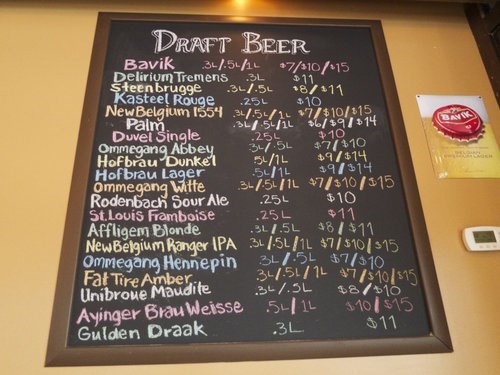 DRAFT BEER
Bavik .3L/.5L/1L $7/$10/$15
Delirium Tremens .3L $11
Steenbrugge .3L/.5L $8/$11
Kasteel Rouge .25L $10
New Belgium 1554 .3L/.5L/1L $7/$10/$15
Palm .3L/.5L/1L $6/$9/$14
Duvel Single .25L $10
Ommegang Abbey .3L/.5L $7/$10
Hofbrau Dunkel .5L/1L $9/$14
Hofbrau Lager .5L/1L $9/$14
Ommegang Witte .3L/.5L/1L $7/$10/$15
Rodenbach Sour Ale .25L $10
St. Louis Framboise .25L $11
Affligem Blonde .3L/.5L $8/$11
New Belgium Ranger IPA .3L/.5L/1L $7/$10/$15
Ommegang Hennepin .3L/.5L $7/$10
Fat Tire Amber .3L/.5L/1L $7/$10/$15
Unibroue Maudite .3L/.5L $8/$10
Ayinger Brau Weisse .5L/1L $10/$15
Gulden Draak .3L $11
BAVIK